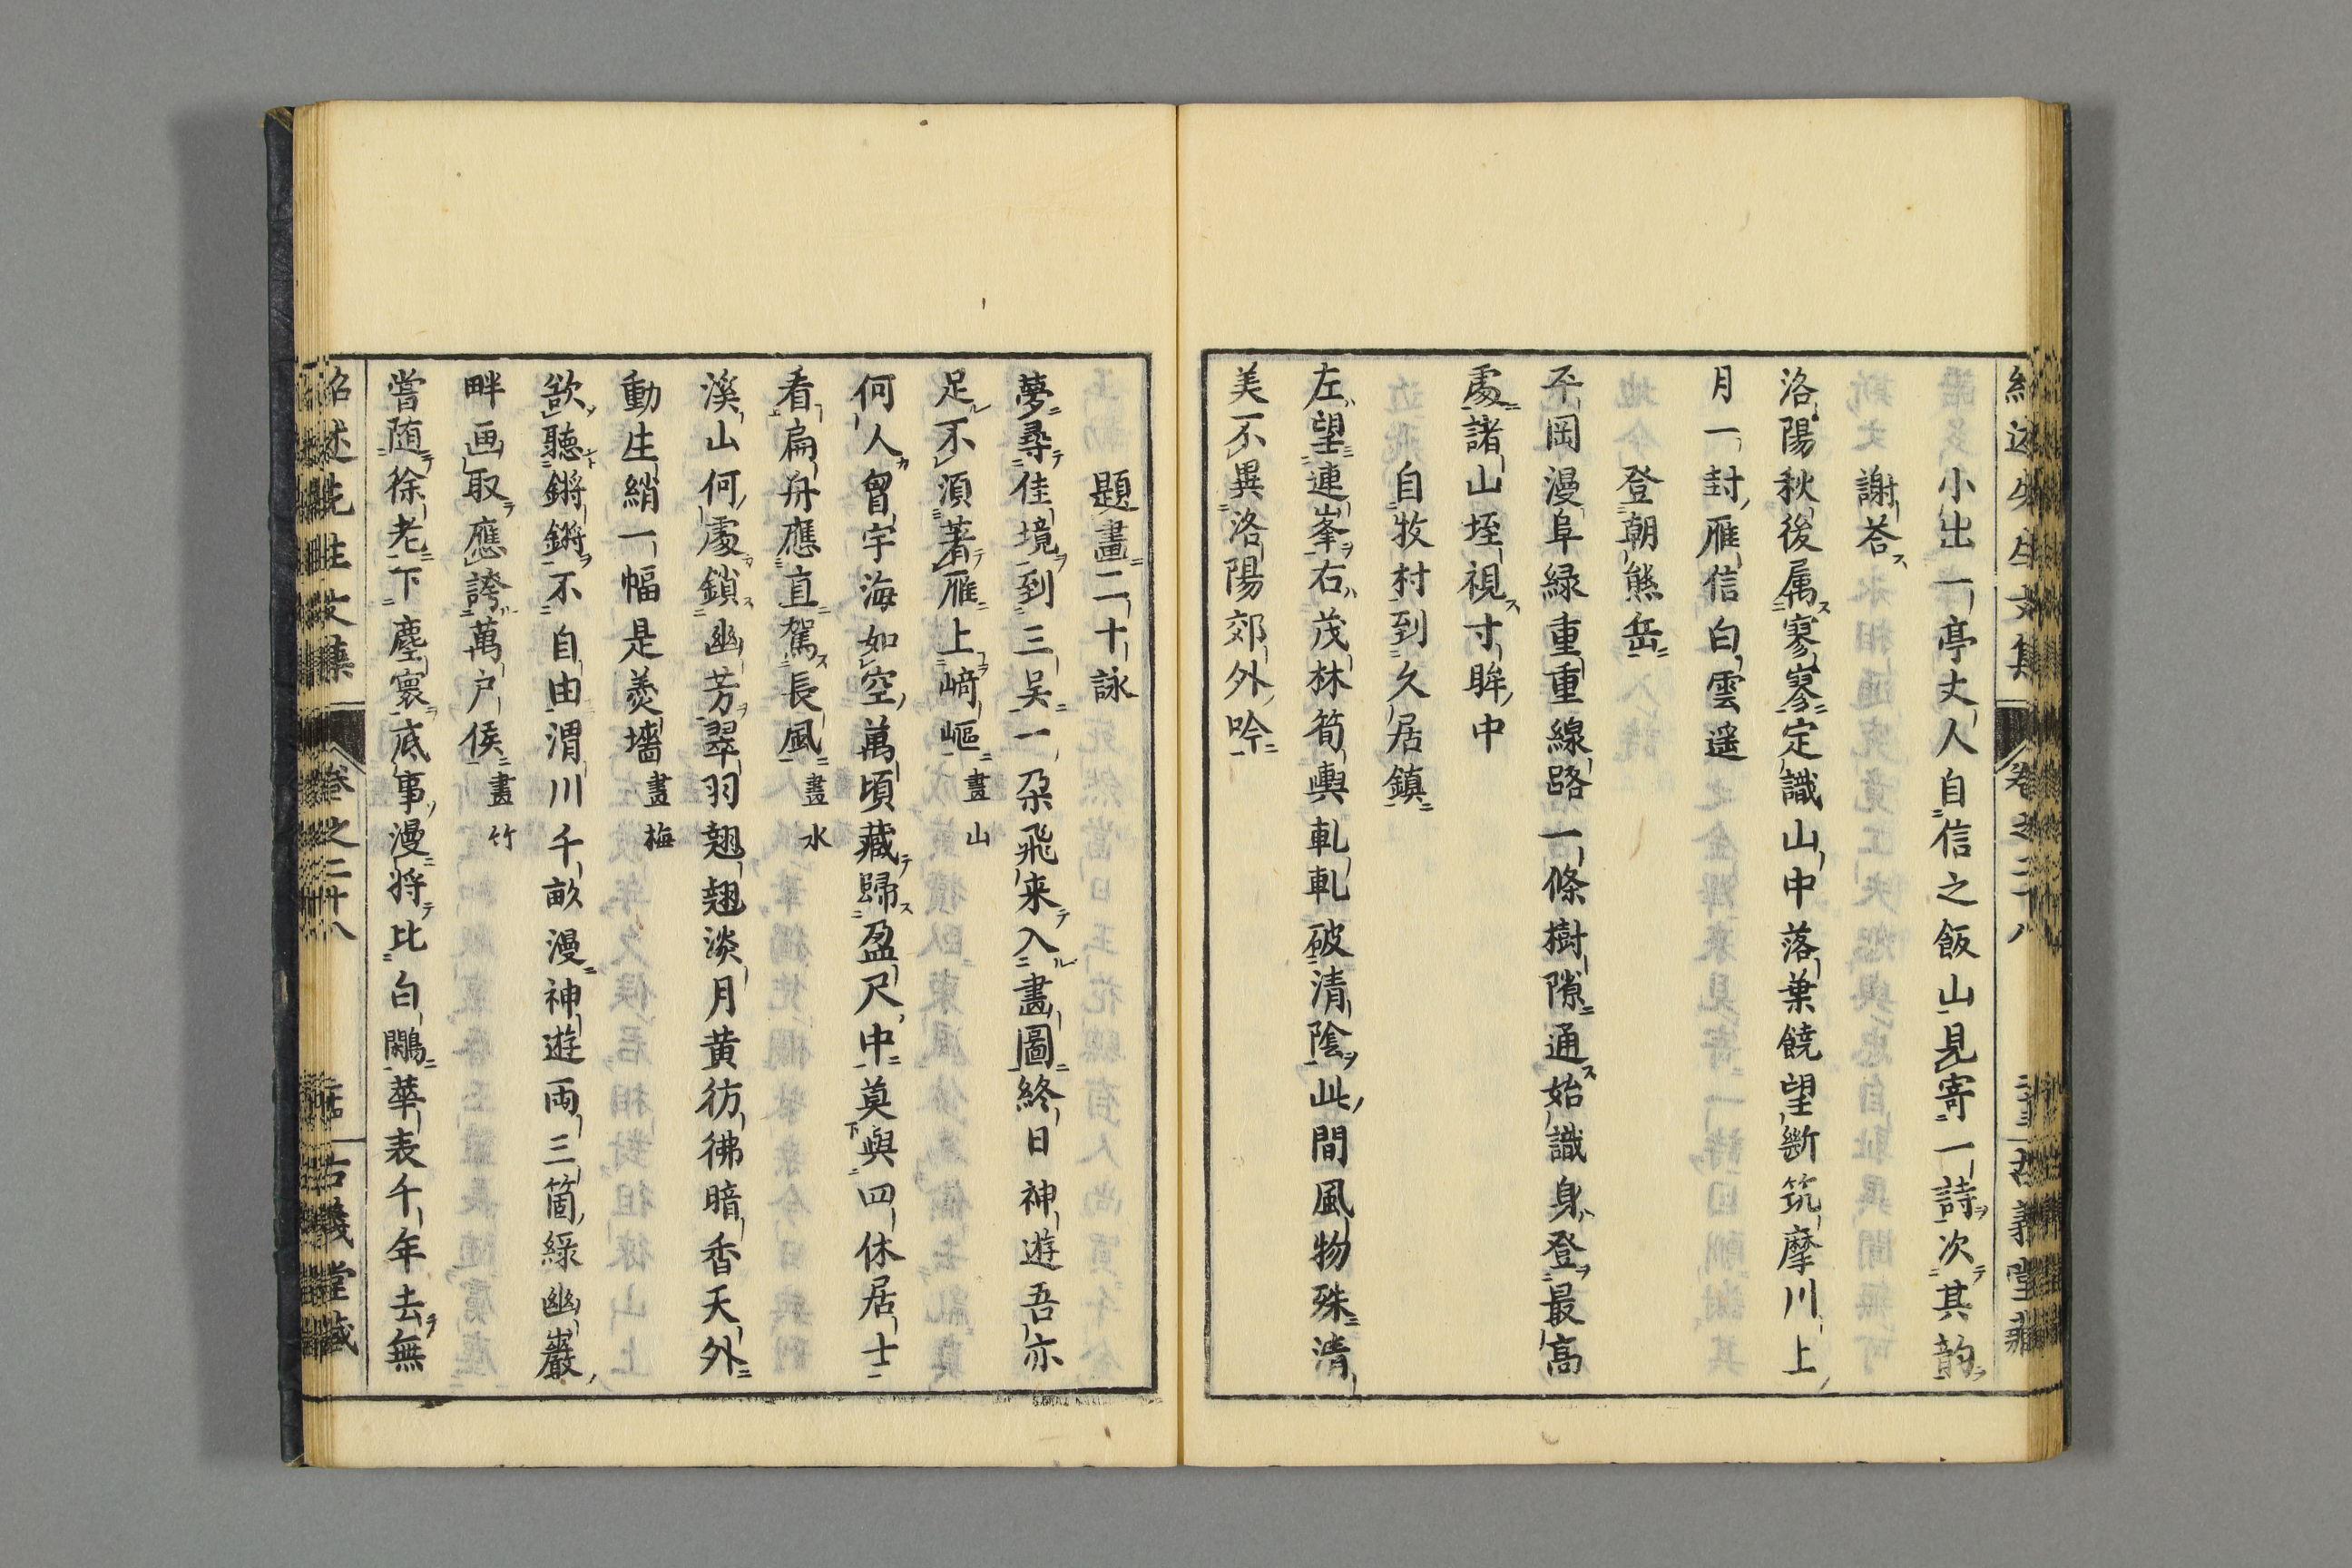 紹述先生文集 卷之二十八 古義堂藏
小出一亭丈人自信之飯山見寄一詩次其韵
謝荅
洛陽秋後属寥寥定識山中落葉饒望斷筑摩川上
月一封雁信白雲遥
登朝熊岳
平岡漫阜緑重重線路一條樹隙通始識身登最高
處諸山垤視寸眸中
自牧村到久居鎮
左望連峯右茂林筍輿軋軋破清陰此間風物殊清
美不異洛陽郊外吟
題畫二十詠
夢尋佳境到三吴一朶飛来入畫圖終日神遊吾亦
足不須著雁上﨑嶇 畫山
何人曾宇海如空萬頃藏歸盈尺中莫與四休居士
看扁舟應直駕長風 畫水
溪山何處鎖幽芳翠羽翹翹淡月黄彷彿暗香天外
動生綃一幅是羙墻 畫梅
欲聽鏘鏘不自由渭川千畝漫神遊両三箇緑幽巖
畔画取應誇萬户侯 畫竹
嘗随徐老下塵寰底事漫将比白鷴華表千年去無
紹述先生文集 卷之二十八 古義堂藏